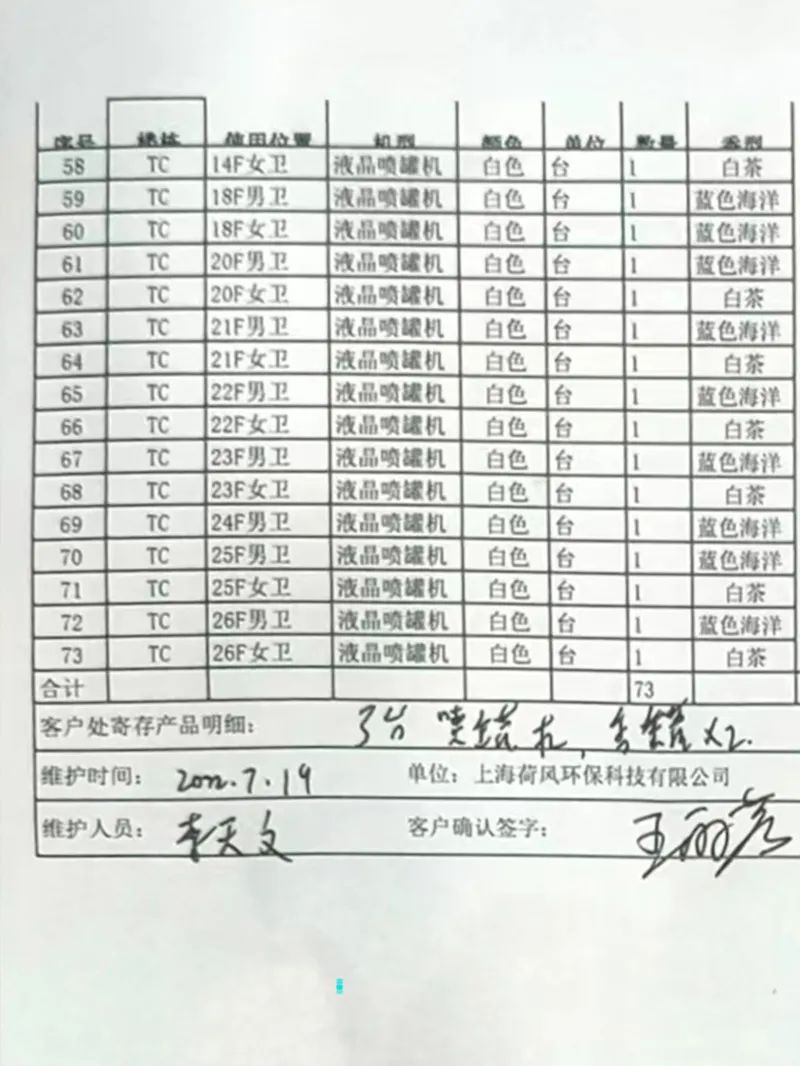 序号 楼栋 使用位置 机型 颜色 单位 数量 香型
58 TC 14F女卫 液晶喷罐机 白色 台 1 白茶
59 TC 18F男卫 液晶喷罐机 白色 台 1 蓝色海洋
60 TC 18F女卫 液晶喷罐机 白色 台 1 蓝色海洋
61 TC 20F男卫 液晶喷罐机 白色 台 1 蓝色海洋
62 TC 20F女卫 液晶喷罐机 白色 台 1 白茶
63 TC 21F男卫 液晶喷罐机 白色 台 1 蓝色海洋
64 TC 21F女卫 液晶喷罐机 白色 台 1 白茶
65 TC 22F男卫 液晶喷罐机 白色 台 1 蓝色海洋
66 TC 22F女卫 液晶喷罐机 白色 台 1 白茶
67 TC 23F男卫 液晶喷罐机 白色 台 1 蓝色海洋
68 TC 23F女卫 液晶喷罐机 白色 台 1 白茶
69 TC 24F男卫 液晶喷罐机 白色 台 1 蓝色海洋
70 TC 25F男卫 液晶喷罐机 白色 台 1 蓝色海洋
71 TC 25F女卫 液晶喷罐机 白色 台 1 白茶
72 TC 26F男卫 液晶喷罐机 白色 台 1 蓝色海洋
73 TC 26F女卫 液晶喷罐机 白色 台 1 白茶
合计 73
客户处寄存产品明细： 3台 喷罐机，香罐X2.
维护时间： 2022.7.19 单位：上海荷风环保科技有限公司
维护人员： 李天文 客户确认签字：